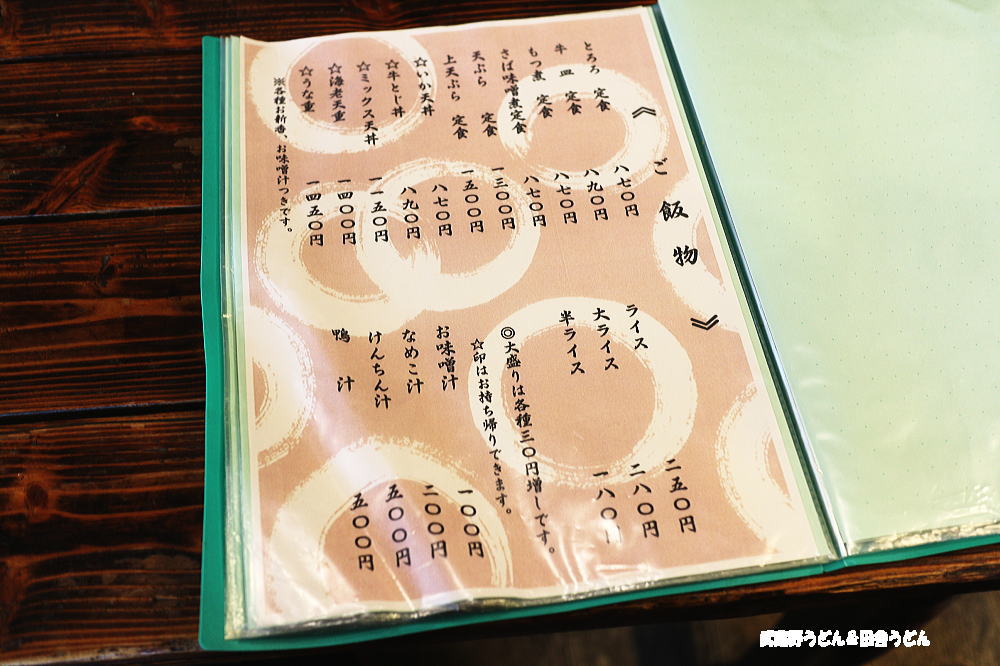 《 ご飯物 》
とろろ 定食 八七〇円
牛皿 定食 八九〇円
もつ煮 定食 八七〇円
さば味噌煮定食 八七〇円
天ぷら 定食 一三〇〇円
上天ぷら 定食 一五〇〇円
☆いか天丼 八七〇円
☆牛とじ丼 八九〇円
☆ミックス天丼 一一五〇円
☆海老天重 一四〇〇円
☆うな重 一四五〇円
※各種お新香、お味噌汁つきです。
ライス 二五〇円
大ライス 二八〇円
半ライス 一八〇円
◎大盛りは各種三〇円増しです。
☆印はお持ち帰りできます。
お味噌汁 一〇〇円
なめこ汁 二〇〇円
けんちん汁 五〇〇円
鴨汁 五〇〇円
武蔵野うどん＆田舎うどん